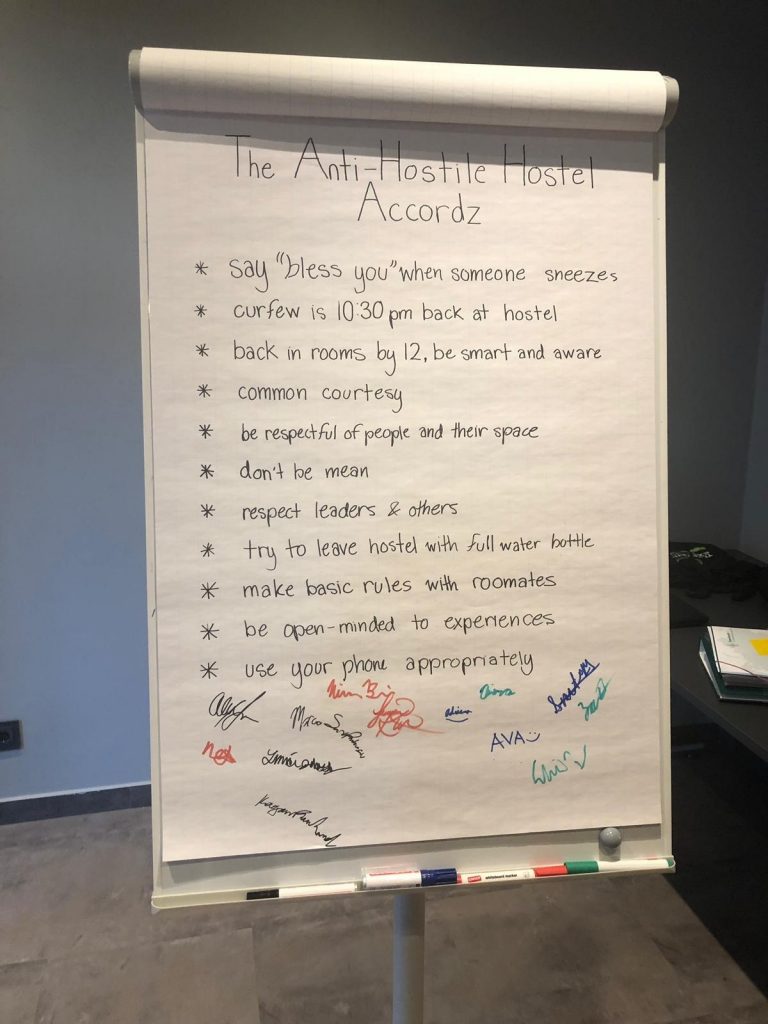 The Anti-Hostile Hostel
Accordz
* say "bless you" when someone sneezes
* curfew is 10:30 pm back at hostel
* back in rooms by 12, be smart and aware
* common courtesy
* be respectful of people and their space
* don't be mean
* respect leaders & others
* try to leave hostel with full water bottle
* make basic rules with roomates
* be open-minded to experiences
* use your phone appropriately
AVA